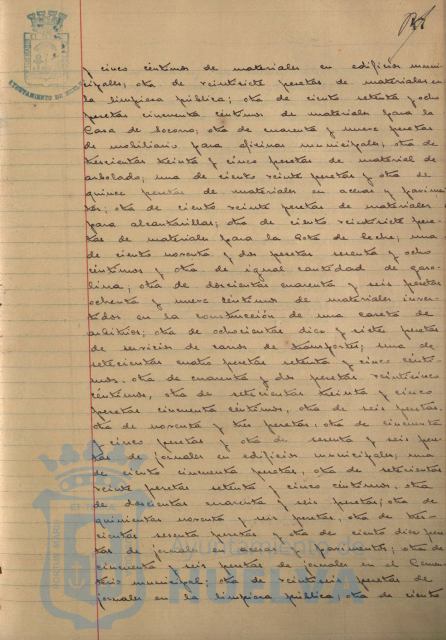 y cinco céntimos de materiales en edificios muni-
cipales; otra de veintisiete pesetas de materiales en
la limpieza pública; otra de ciento setenta y ocho
pesetas cincuenta céntimos de materiales para la
Casa de Socorro; otra de cuarenta y nueve pesetas
de mobiliario para oficinas municipales; otra de
trescientas treinta y cinco pesetas de material de
arbolado; una de ciento veinte pesetas y otra de
quince pesetas de materiales en aceras y pavimen-
tos; otra de ciento veinte pesetas de materiales
para alcantarillas; otra de ciento veintisiete pese-
tas de materiales para la Gota de Leche; una
de ciento noventa y dos pesetas sesenta y ocho
céntimos y otra de igual cantidad de gaso-
lina; otra de doscientas cuarenta y seis pesetas
ochenta y nueve céntimos de materiales inver-
tidos en la construcción de una caseta de
arbitrios; otra de ochocientas diez y siete pesetas
de servicios de carros de transportes; una de
setecientas cuatro pesetas setenta y cinco cénti-
mos, otra de cuarenta y dos pesetas veinticinco
céntimos, otra de setecientas treinta y cinco
pesetas cincuenta céntimos, otra de seis pesetas,
otra de noventa y tres pesetas, otra de cincuenta
y cinco pesetas y otra de sesenta y seis pese-
tas de jornales en edificios municipales; una
de ciento cincuenta pesetas, otra de setecientas
veinte pesetas setenta y cinco céntimos, otra
de doscientas cuarenta y seis pesetas, otra de
quinientas noventa y seis pesetas, otra de tres-
cientas sesenta pesetas y otra de ciento diez pese-
tas de jornales en aceras y pavimentos; otra de
cincuenta y seis pesetas de jornales en el Cemen-
terio municipal; otra de veintiseis pesetas de
jornales en la limpieza pública; otra de ciento
AYUNTAMIENTO DE HUELVA
Ayuntamiento de
HUELVA